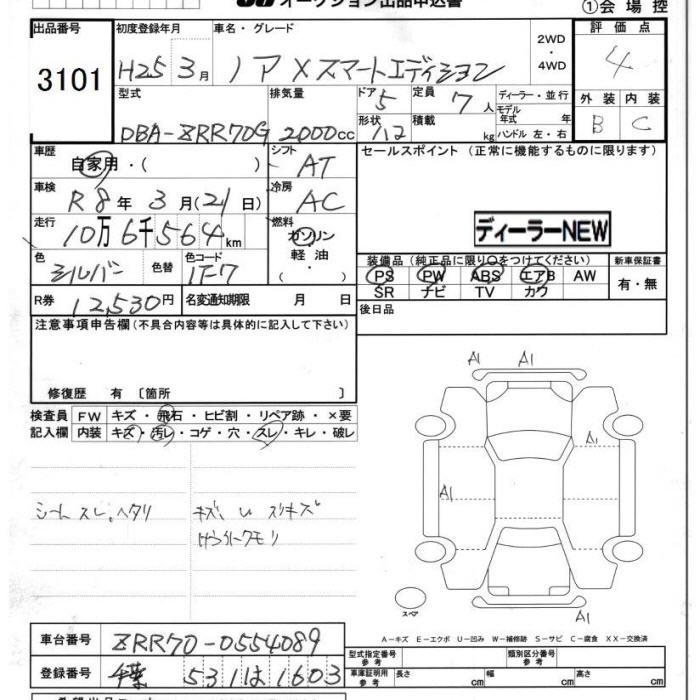 オークション出品申込書
①会場控
出品番号 3101
初度登録年月 H25 3月
車名・グレード ノア Xスマートエディション
2WD・4WD
評価点 4
外装 B 内装 C
型式 DBA-ZRR70G
排気量 2000cc
ドア 5 形状
定員 7人 積載 kg
ディーラー・並行
モデル年式 年
ハンドル 左・右
車歴 自家用・( )
シフト AT
セールスポイント (正常に機能するものに限ります)
車検 R8年3月(21日)
冷房 AC
走行 10万6千564km
燃料 ガソリン 軽油・
ディーラーNEW
色 シルバー 色替 色コード 1F7
装備品(純正品に限り○をつけてください) 新車保証書
PS PW ABS エアB AW 有・無
SR ナビ TV カワ
R券 12,530円 名変通知期限 月 日
後日品
注意事項申告欄(不具合内容等は具体的に記入して下さい)
修復歴 有 〔箇所 〕
検査員 FW キズ・飛石・ヒビ割・リペア跡・×要
記入欄 内装 キズ・汚レ・コゲ・穴・スレ・キレ・破レ
シートスレ。ヘタリ
キズ、U スリキズ
A1 A1
A1
A1
A1
スペア
A-キズ E-エクボ U-凹み W-補修跡 S-サビ C-腐食 XX-交換済
車台番号 ZRR70-0554089
登録番号 千葉 531 は 1603
型式指定番号 参考 類別区分番号 参考
車庫証明用 参考 長さ cm 幅 cm 高さ cm